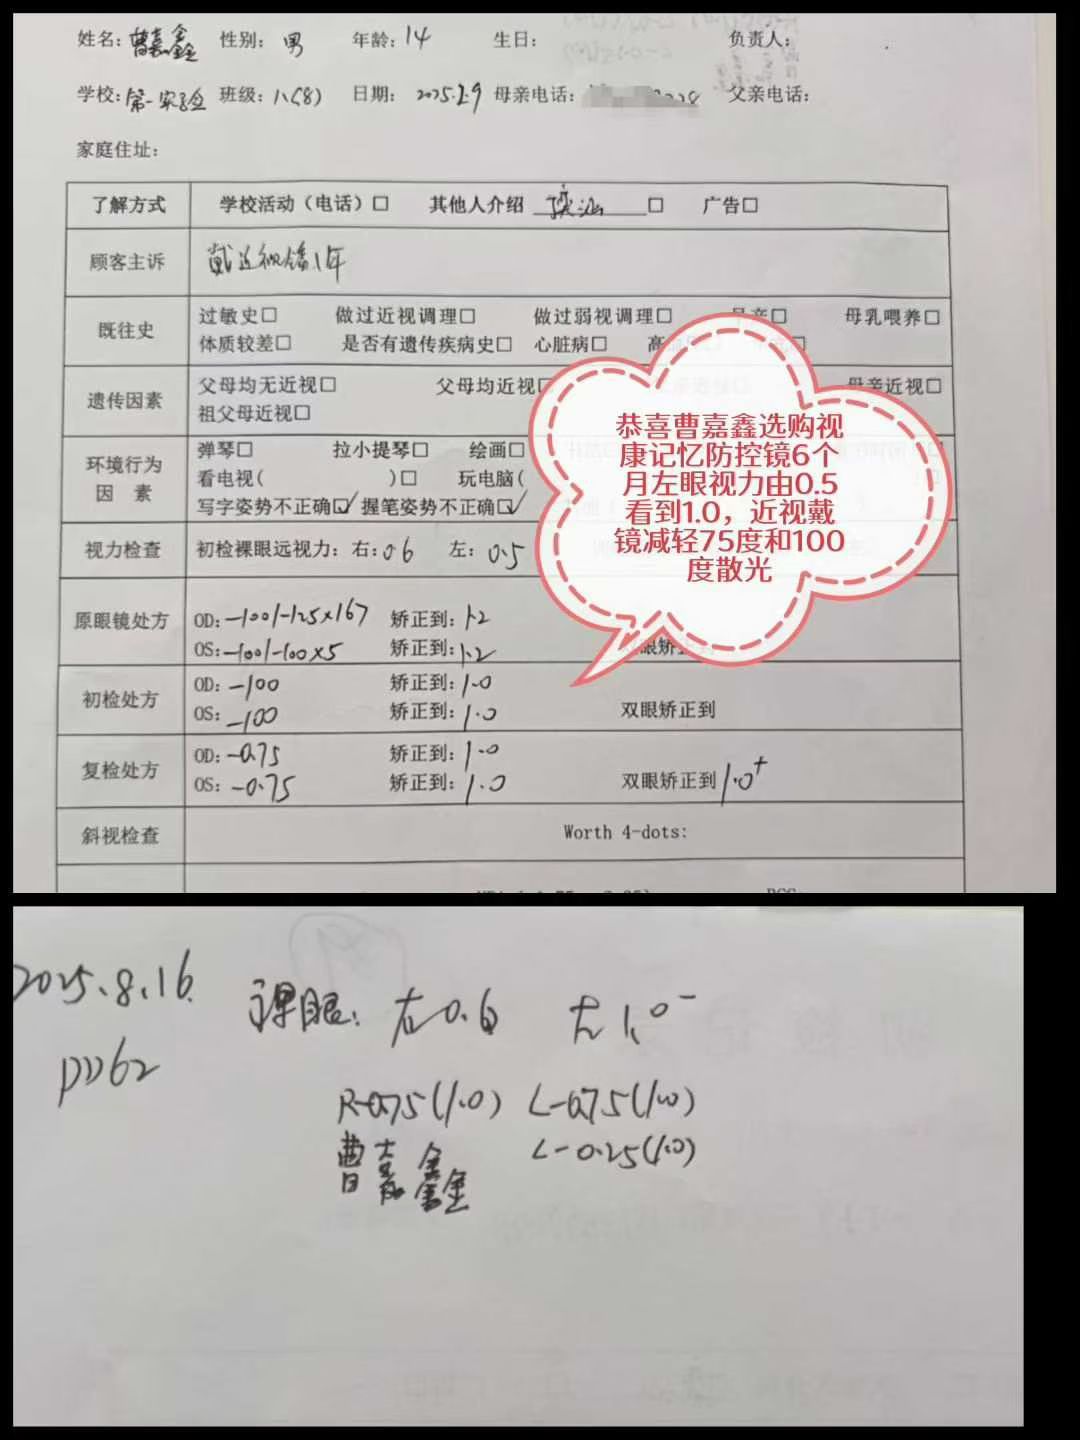 姓名：曹嘉鑫 性别：男 年龄：14 生日： 负责人：
学校：第一实验 班级：八(8) 日期：2025.2.9 母亲电话： 父亲电话：
家庭住址：
了解方式 学校活动（电话）□ 其他人介绍 □ 广告□
顾客主诉 戴近视镜1年
既往史 过敏史□ 做过近视调理□ 做过弱视调理□ 早产□ 母乳喂养□
体质较差□ 是否有遗传疾病史□ 心脏病□ 高
遗传因素 父母均无近视□ 父母均近视□ 母亲近视□
祖父母近视□
环境行为因素 弹琴□ 拉小提琴□ 绘画□
看电视( )□ 玩电脑(
写字姿势不正确☑ 握笔姿势不正确☑
视力检查 初检裸眼远视力：右：0.6 左：0.5
原眼镜处方 OD：-100/-125×167 矫正到：1.2
OS：-100/-100×5 矫正到：1.2 双眼矫正到
初检处方 OD：-100 矫正到：1.0
OS：-100 矫正到：1.0 双眼矫正到
复检处方 OD：-0.75 矫正到：1.0
OS：-0.75 矫正到：1.0 双眼矫正到 1.0+
斜视检查 Worth 4-dots:
恭喜曹嘉鑫选购视
康记忆防控镜6个
月左眼视力由0.5
看到1.0，近视戴
镜减轻75度和100
度散光
2025.8.16.
裸眼：右0.6 左1.0-
PD62
R-0.75(1.0) L-0.75(1.0)
曹嘉鑫 L-0.25(1.0)